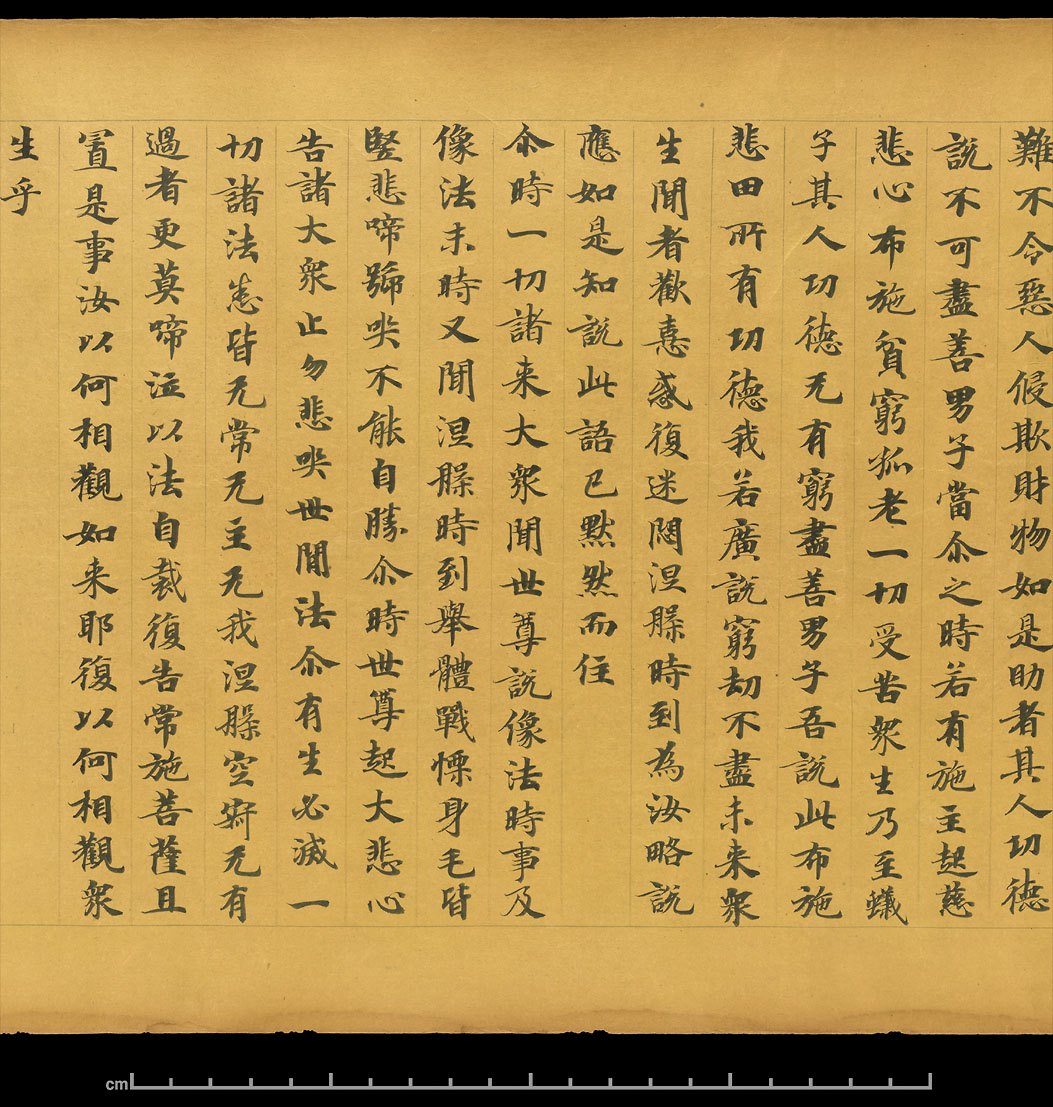 難不令惡人侵欺財物如是助者其人功德
說不可盡善男子當尒之時若有施主起慈
悲心布施貧窮狐老一切受苦衆生乃至蟻
子其人功德无有窮盡善男子吾說此布施
悲田所有功德我若廣說窮劫不盡未来衆
生聞者歡憙感復迷悶涅槃時到為汝略說
應如是知說此語已默然而住
尒時一切諸来大衆聞世尊說像法時事及
像法末時又聞涅槃時到舉體戰慄身毛皆
竪悲啼號哭不能自勝尒時世尊起大悲心
告諸大衆止勿悲哭世閒法尒有生必滅一
切諸法悉皆无常无主无我涅槃空寂无有
過者更莫啼泣以法自裁復告常施菩薩且
置是事汝以何相觀如来耶復以何相觀衆
生乎
cm